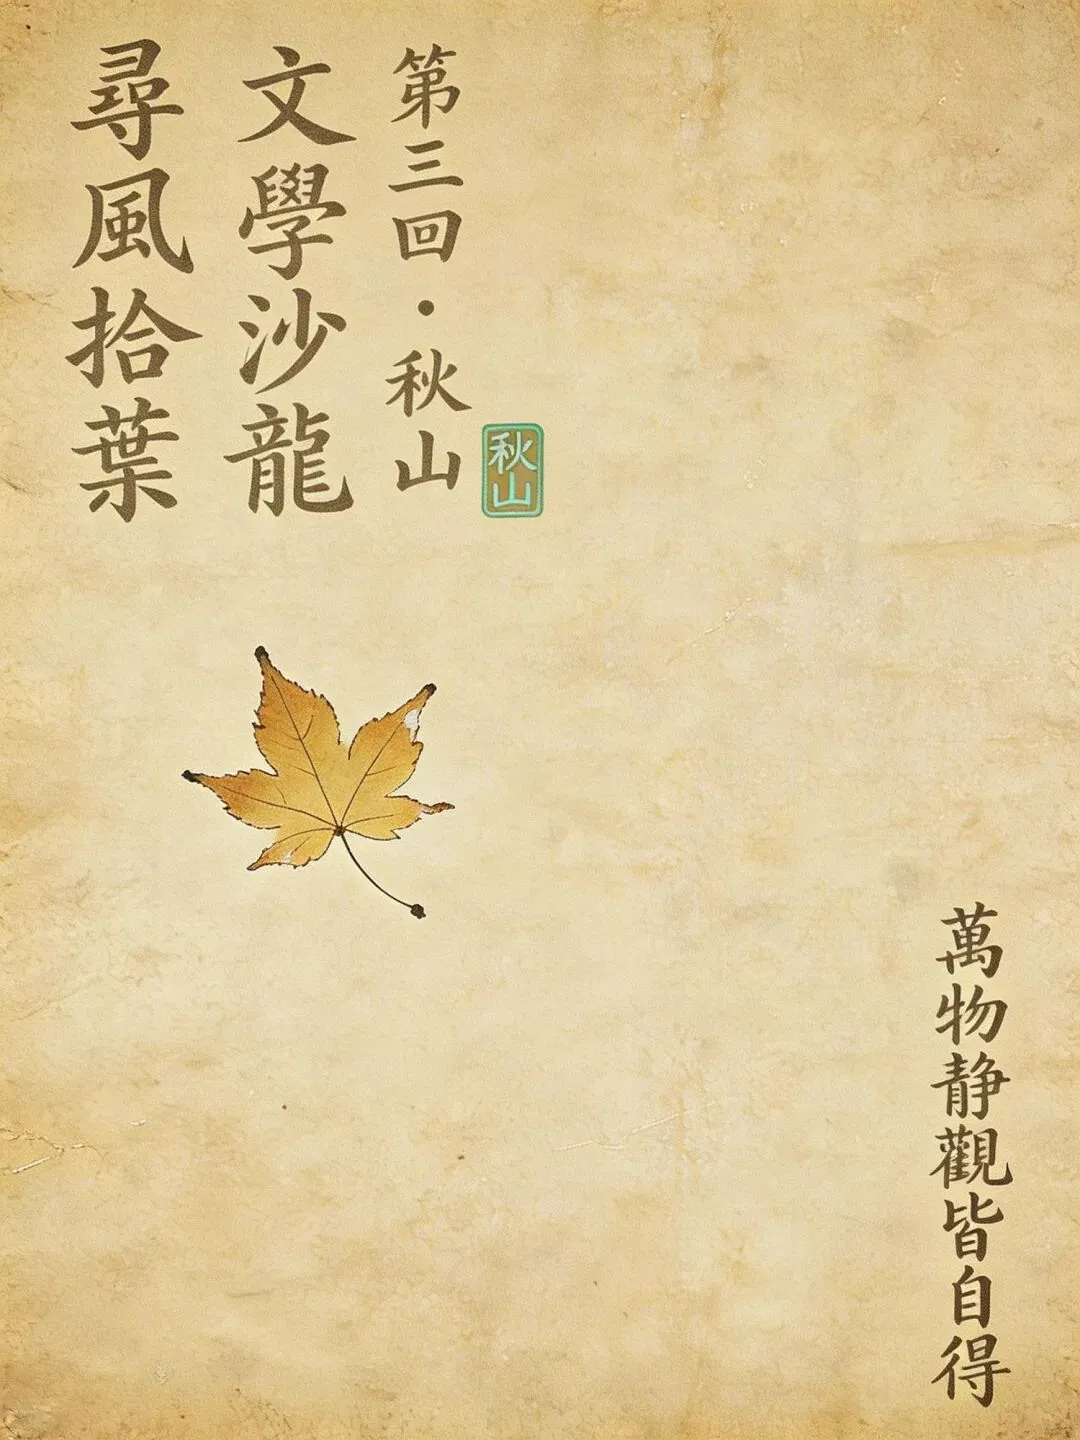 尋風拾葉
文學沙龍
第三回·秋山
秋山
萬物静觀皆自得